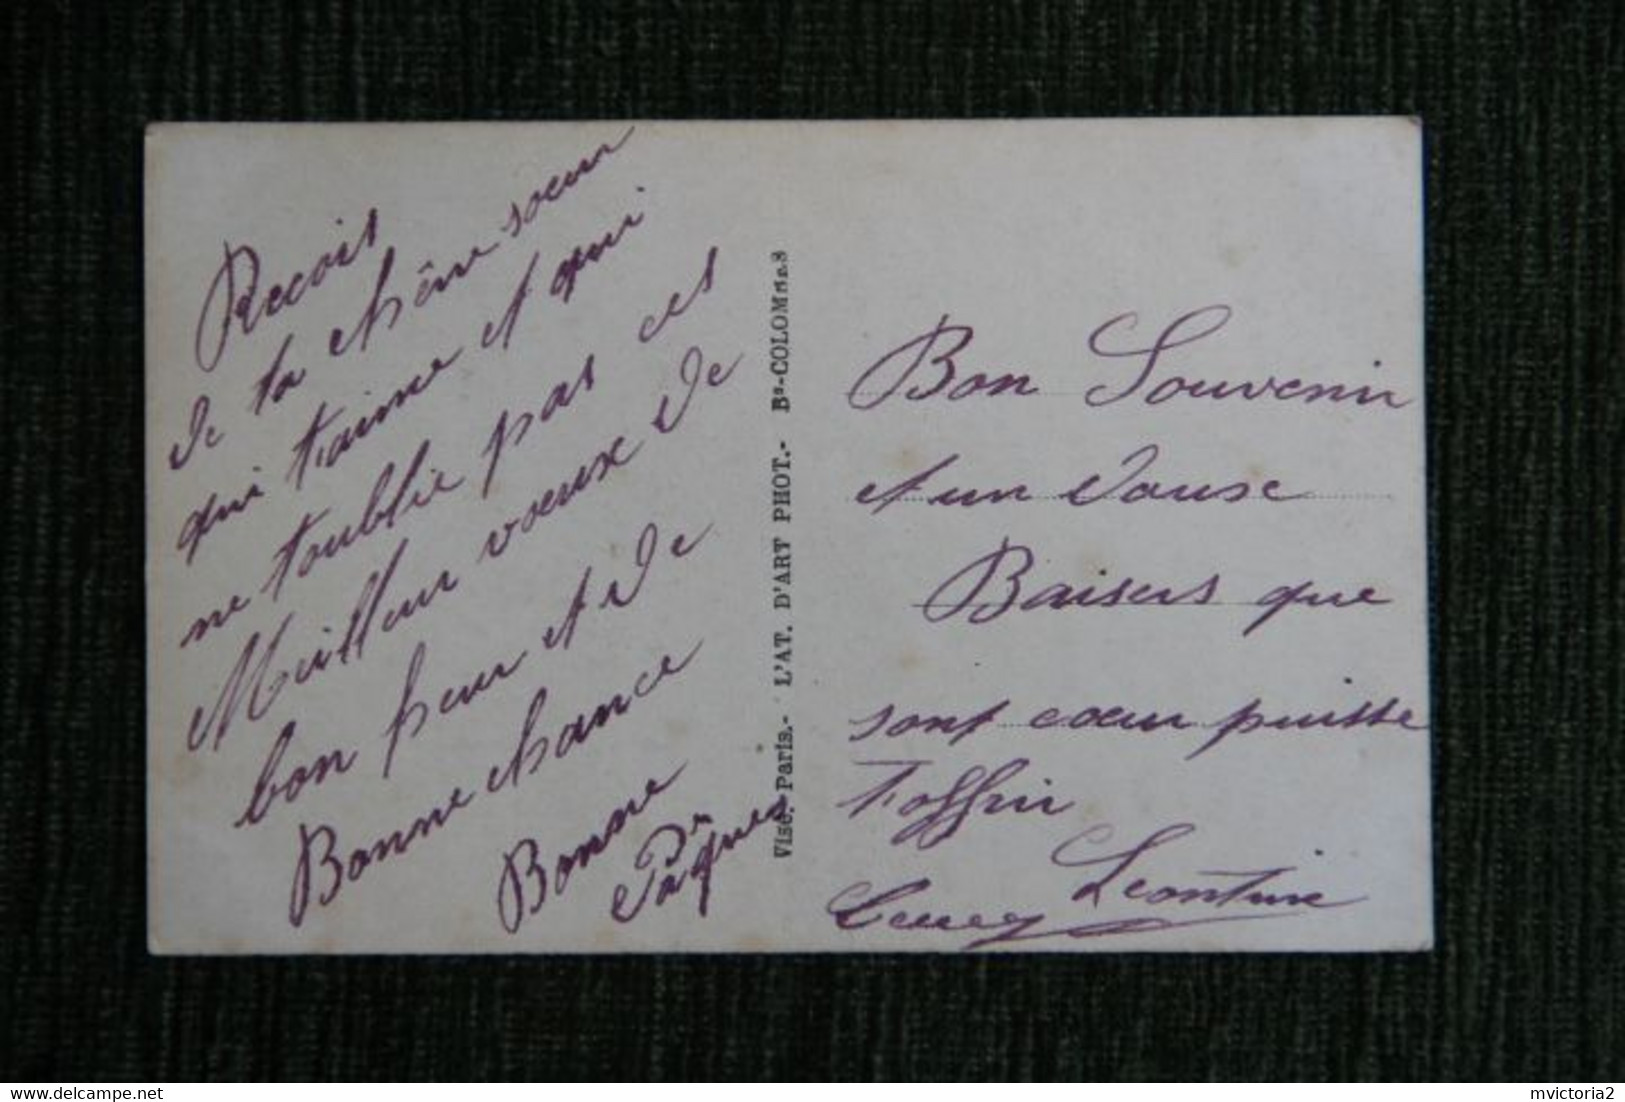 Recois
de ta chère sœur
qui t'aime et qui
ne t'oublie pas ces
Meilleur vœux de
bon heur et de
Bonne chance
Bonne
Pâques
Visé. Paris.- L'AT. D'ART PHOT.- Bs-COLOMBES
Bon Souvenir
et un douse
Baisers que
sont cœur puisse
t'offrir
Leontine
mvictoria2